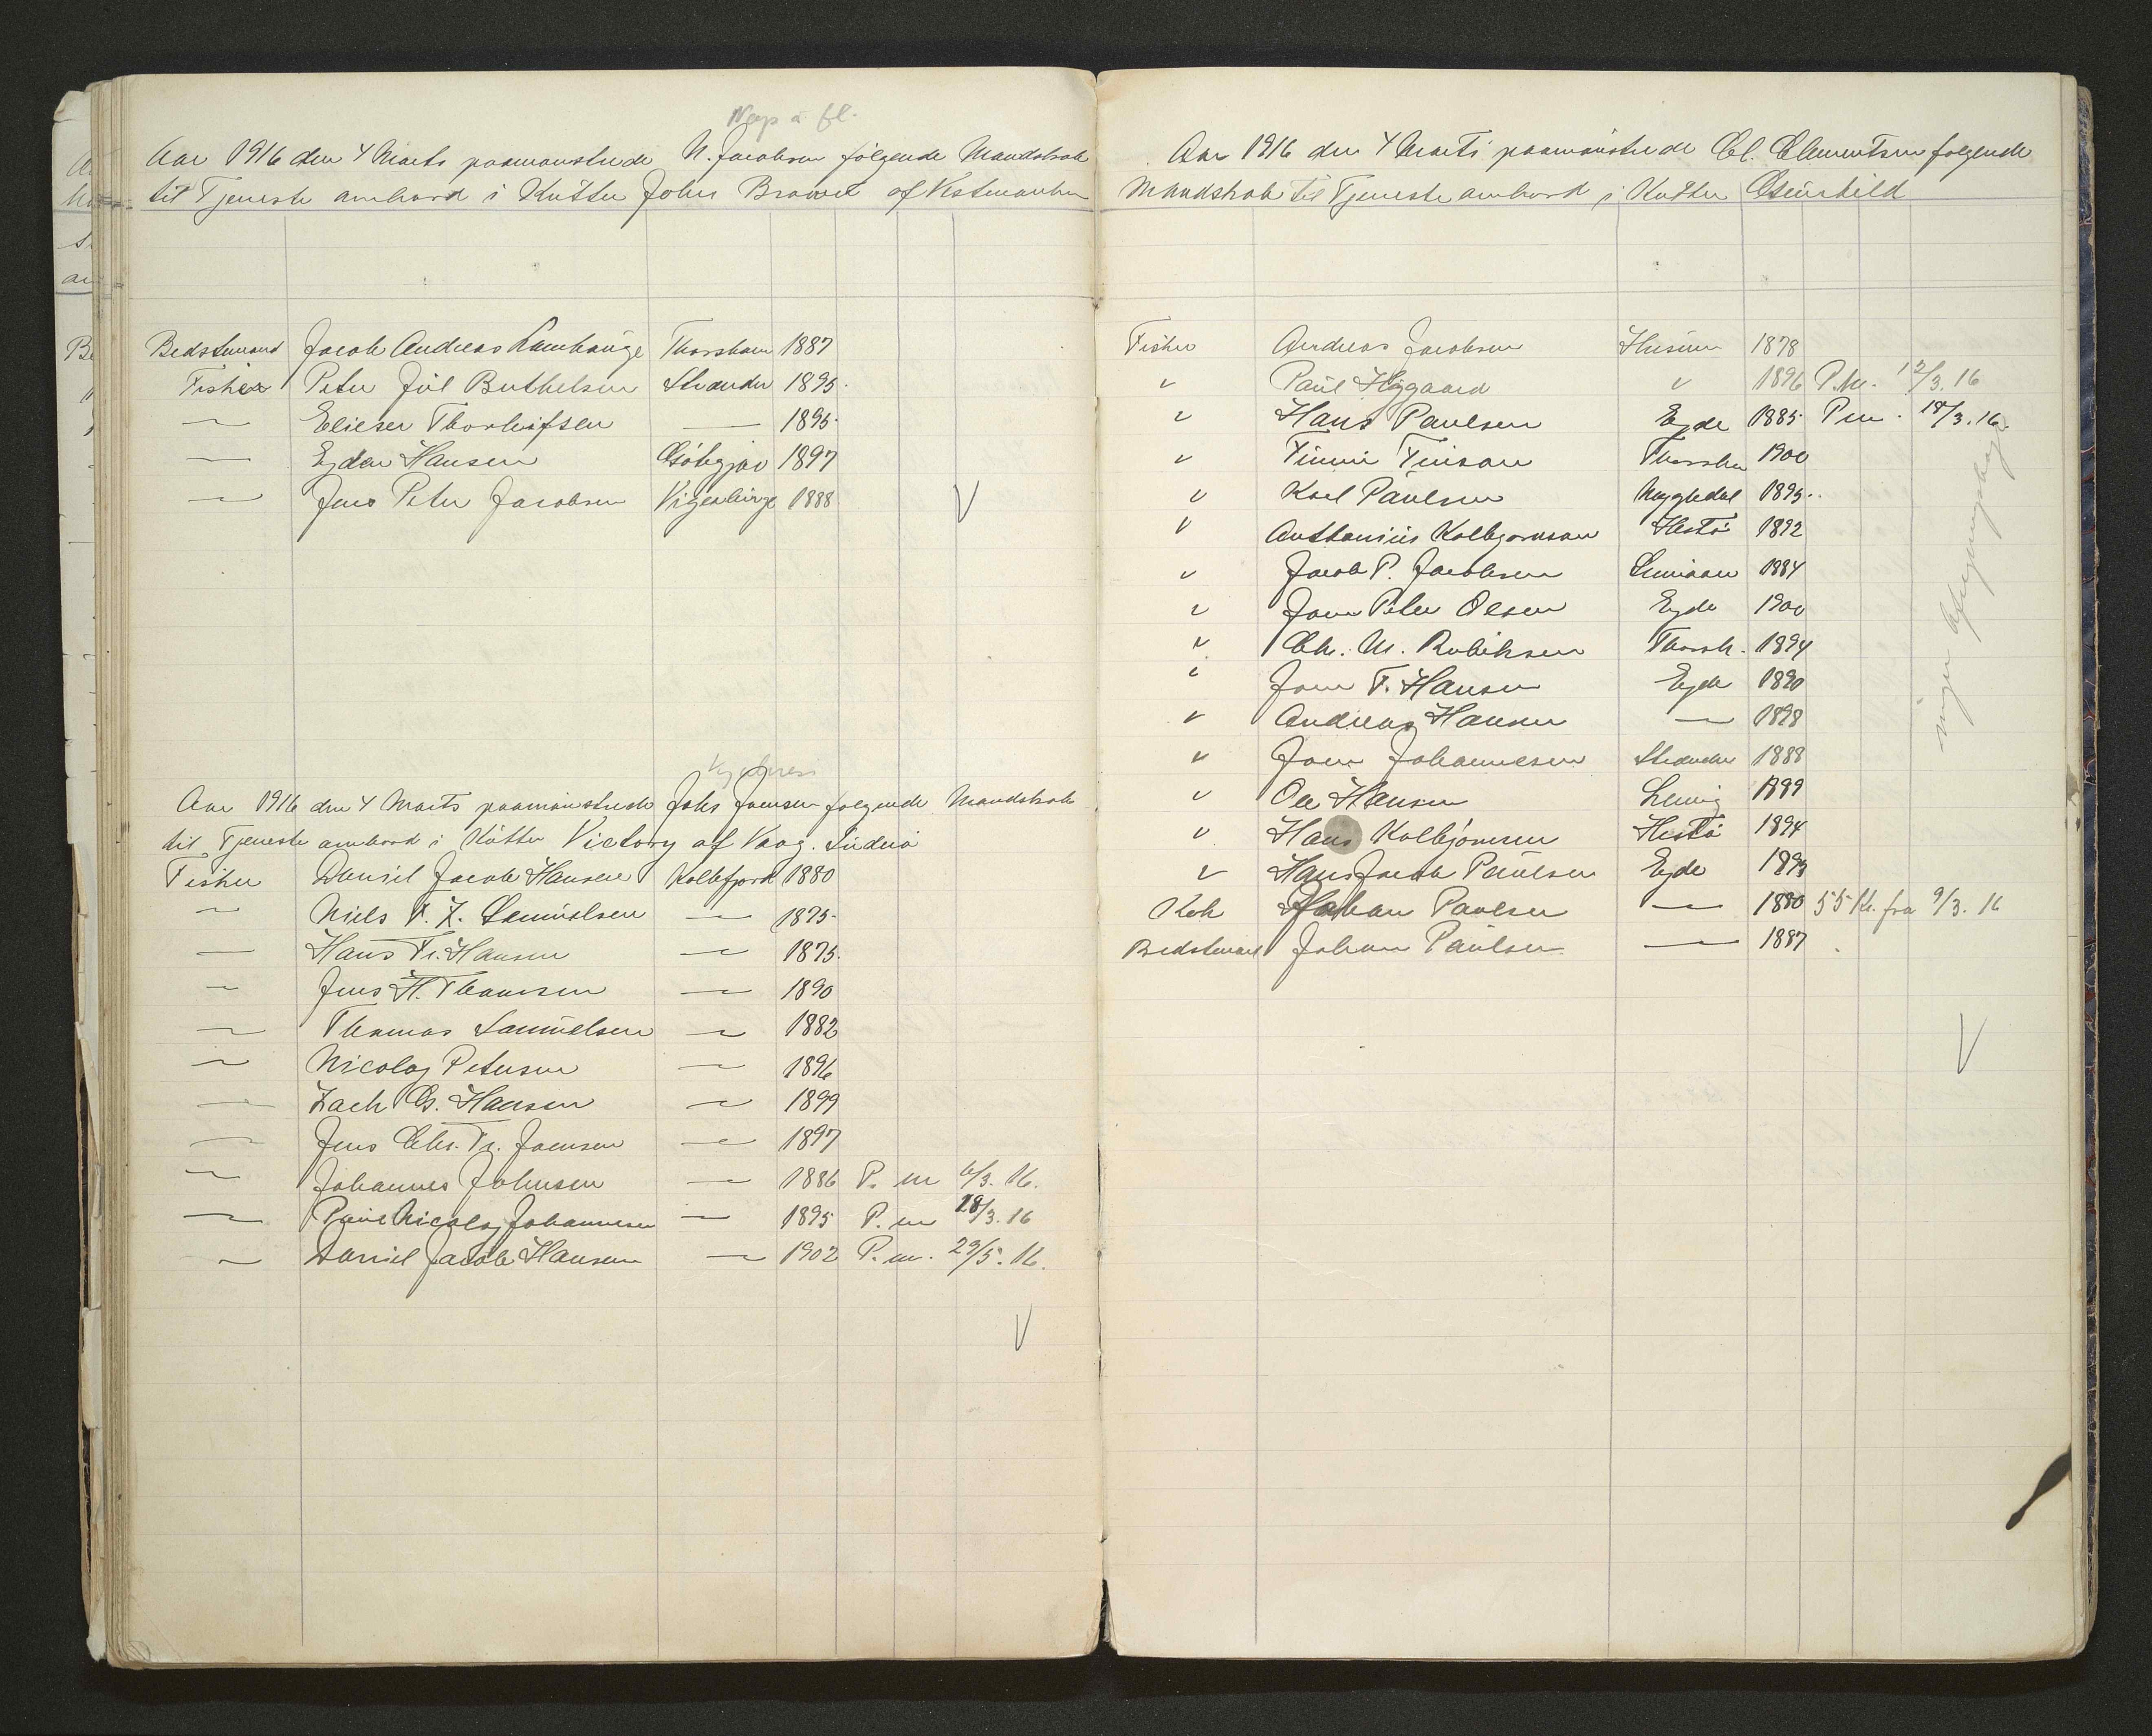 Aar 1916 den 4 Marts paamönstrede N. Jacobsen følgende Mandskab
til Tjeneste ombord i Kutter John Brown af Vestmanhavn
Bedstemand Jacob Andreas Lamhauge Thorshavn 1887
Fisker Peter Júl Berthelsen Strænder 1895
— Elieser Thorleifsen — 1895
— Ejdar Hansen Gjógv 1897
— Jens Peter Jacobsen 1888
V
Aar 1916 den 4 Marts paamönstrede Johs Joensen følgende Mandskab
til Tjeneste ombord i Kutter Victory af Vaag. Suderö
Fisker Daniel Jacob Hansen Kollefjord 1880
— Niels F. Z. Samuelsen — 1875
— Hans Fr. Hansen — 1875
— Jens H. Thomsen — 1890
— Thomas Samuelsen — 1882
— Nicolaj Petersen — 1896
— Zach G. Hansen — 1899
— Jens Chr. Fr. Joensen — 1897
— Johannes Johnsen — 1886 P. m 6/3. 16.
— Poul Nicolaj Johannesen — 1895 P. m 18/3. 16
— Daniel Jacob Hansen — 1902 P. m. 29/5. 16.
V
Aar 1916 den 4 Marts paamönstrede Cl. Clementsen følgende
Mandskab til Tjeneste ombord i Kutter
Fisker Andreas Jacobsen Húsum 1878
v Paul v 1896 P.M. 12/3. 16
v Hans Paulsen Ejde 1885 P m. 18/3. 16.
v 1900
v Karl Paulsen 1895
v Anthonius Kolbjørnsen Hestö 1892
v Jacob P. Jacobsen 1884
v Joen Peter Olsen Ejde 1900
v Chr. M. Rubeksen Thorsh. 1894
v Joen F. Hansen Ejde 1890
v Andreas Hansen — 1898
v Joen Johannesen Strænder 1888
v Ole Hansen 1899
v Hans Kolbjørnsen Hestö 1894
v Hans Jacob Paulsen Ejde 1893
Kok Johan Paulsen — 1880 55 Kr. fra 9/3. 16
Bedstemand Johan Paulsen — 1887
V